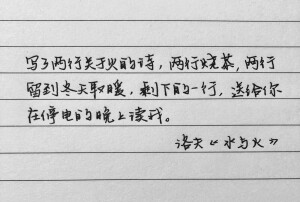 写了两行关于火的诗，两行烧茶，两行
留到冬天取暖，剩下的一行，送给你
在停电的晚上读我。
洛夫《水与火》